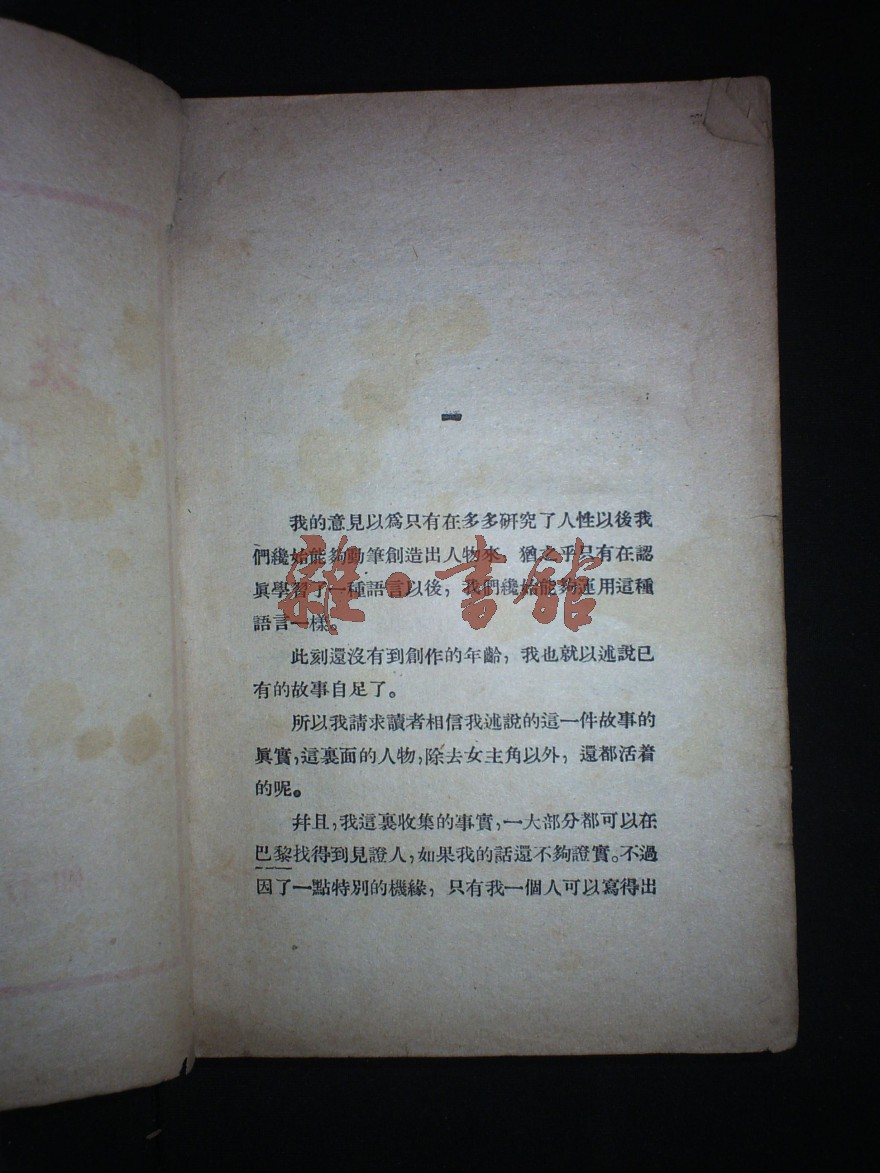 一
我的意見以爲只有在多多研究了人性以後我
們纔始能夠動筆創造出人物來，猶之乎只有在認
眞學習了一種語言以後，我們纔始能夠運用這種
語言一樣。
此刻還沒有到創作的年齡，我也就以述說已
有的故事自足了。
所以我請求讀者相信我述說的這一件故事的
眞實，這裏面的人物，除去女主角以外，還都活着
的呢。
幷且，我這裏收集的事實，一大部分都可以在
巴黎找得到見證人，如果我的話還不夠證實。不過
因了一點特別的機緣，只有我一個人可以寫得出
雜·書館